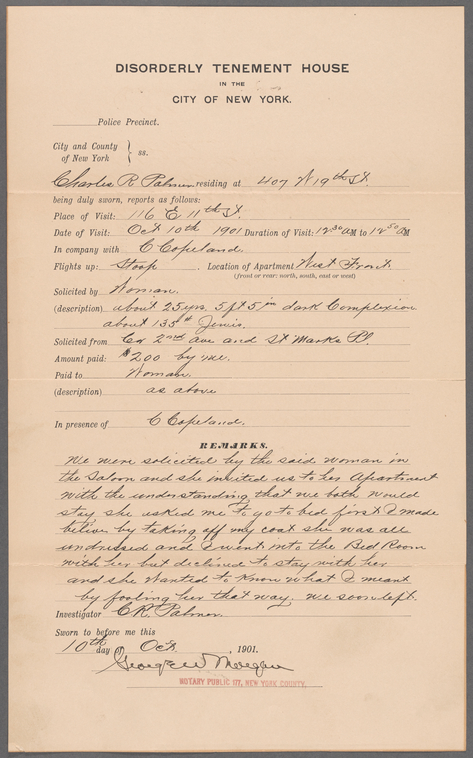 DISORDERLY TENEMENT HOUSE
IN THE
CITY OF NEW YORK.
Police Precinct.
City and County
of New York } ss.
Charles R. Palmer residing at 407 W 19th St.
being duly sworn, reports as follows:
Place of Visit: 116 E 11th St.
Date of Visit: Oct 10th 1901 Duration of Visit: 12 30 AM to 12 50 AM
In company with C Copeland.
Flights up: Stoop . Location of Apartment West Front
(front or rear: north, south, east or west)
Solicited by Woman.
(description) about 25 yrs. 5 ft 5 in dark Complexion
about 135 # Jewis.
Solicited from Cor 2nd ave and St Marks Pl.
Amount paid: $2.00 by me.
Paid to Woman.
(description) as above
In presence of C Copeland.
REMARKS.
We were solicited by the said woman in
the Saloon and she invited us to her Apartment
with the understanding that we both would
stay she asked me to go to bed first I made
belive by taking off my coat she was all
undressed and I went into the Bed Room
with her but declined to stay with her
and she wanted to know what I meant
by fooling her that way. we soon left.
Investigator C. R. Palmer
Sworn to before me this
10th day of Oct. , 1901.
George W Morgan
NOTARY PUBLIC NEW YORK COUNTY.